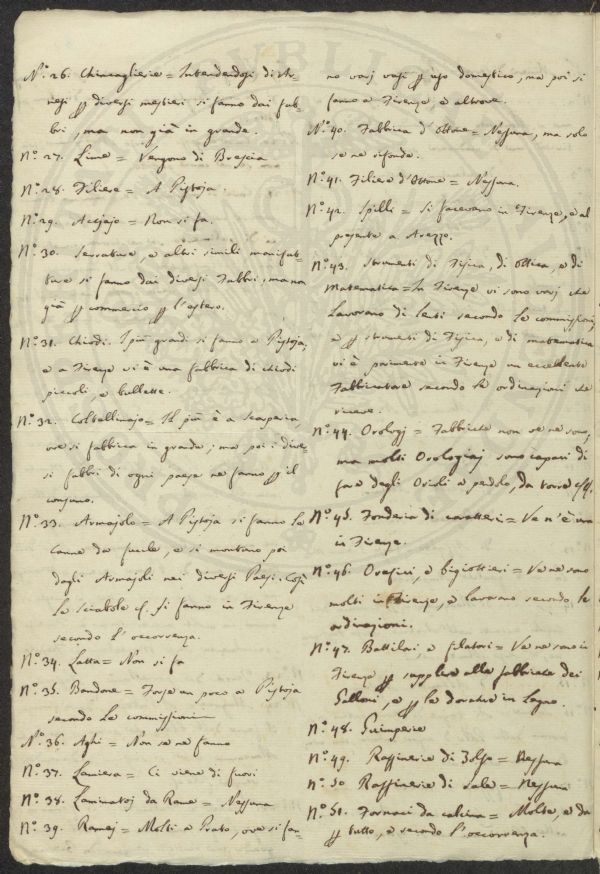 N.o 26. Chincaglierie = Intendendosi di Ar-
nesi p diversi mestieri si fanno dai fab-
bri, ma non già in grande.
N.o 27. Lime = Vengono di Brescia
N.o 28. Filiere = A Pistoja.
N.o 29. Acciajo = Non si fa.
N.o 30. Serrature, e altri simili manifat-
ture si fanno dai diversi Fabbri, ma non
già p commercio p l'estero.
N.o 31. Chiodi. I più grandi si fanno a Pistoja,
e a Firenze vi è una fabbrica di chiodi
piccoli, e bullette.
N.o 32. Coltellinajo = Il più è a Scarperia,
ove si fabbrica in grande; ma poi i dive-
si fabbri di ogni paese ne fanno p il
consumo.
N.o 33. Armajolo = A Pistoja si fanno le
Canne da fucile, e si montano poi
dagli Armajoli nei diversi Paesi. Così
le Sciabole si fanno in Firenze
secondo l'occorrenza.
N.o 34. Latta = Non si fa
N.o 35. Bandone = Forse un poco a Pistoja
secondo le commissioni
N.o 36. Aghi = Non se ne fanno
N.o 37. Lamiera = Ci viene di fuori
N.o 38. Laminatoj da Rame = Nessuna
N.o 39. Ramej = Molti a Prato, ove si fan-
no varj vasi p uso domestico, ma poi si
fanno a Firenze e altrove.
N.o 40. Fabbrica d'Ottone = Nessuna, ma solo
se ne rifonde.
N.o 41. Filiere d'Ottone = Nessuna.
N.o 42. Spilli = Si facevano in Firenze, e al
presente a Arezzo.
N.o 43. Strumenti di Fisica, di Ottica, e di
Matematica = In Firenze vi sono varj che
lavorano di lenti secondo le commissioni,
e p strumenti di Fisica, e di matematica
vi è parimente in Firenze un eccellente
Fabbricatore secondo le ordinazioni che
riceve.
N.o 44. Orologj = Fabbriche non ve ne sono,
ma molti Orologiaj sono capaci di
fare degli Oriuoli a pendolo, da torre
N.o 45. Fonderia di caratteri = Ve n'è una
in Firenze.
N.o 46. Orefici, e bigiottieri = Ve ne sono
molti in Firenze, e lavorano secondo le
ordinazioni.
N.o 47. Battilori, e filatori = Ve ne sono in
Firenze p supplire alle fabbriche dei
Galloni, e p le dorature in legno.
N.o 48. Guimperie
N.o 49. Raffinerie di Zolfo = Nessuna
N.o 50 Raffinerie di Sale = Nessuna
N.o 51. Fornaci da calcina = Molte, e da
p tutto, e secondo l'occorrenza.